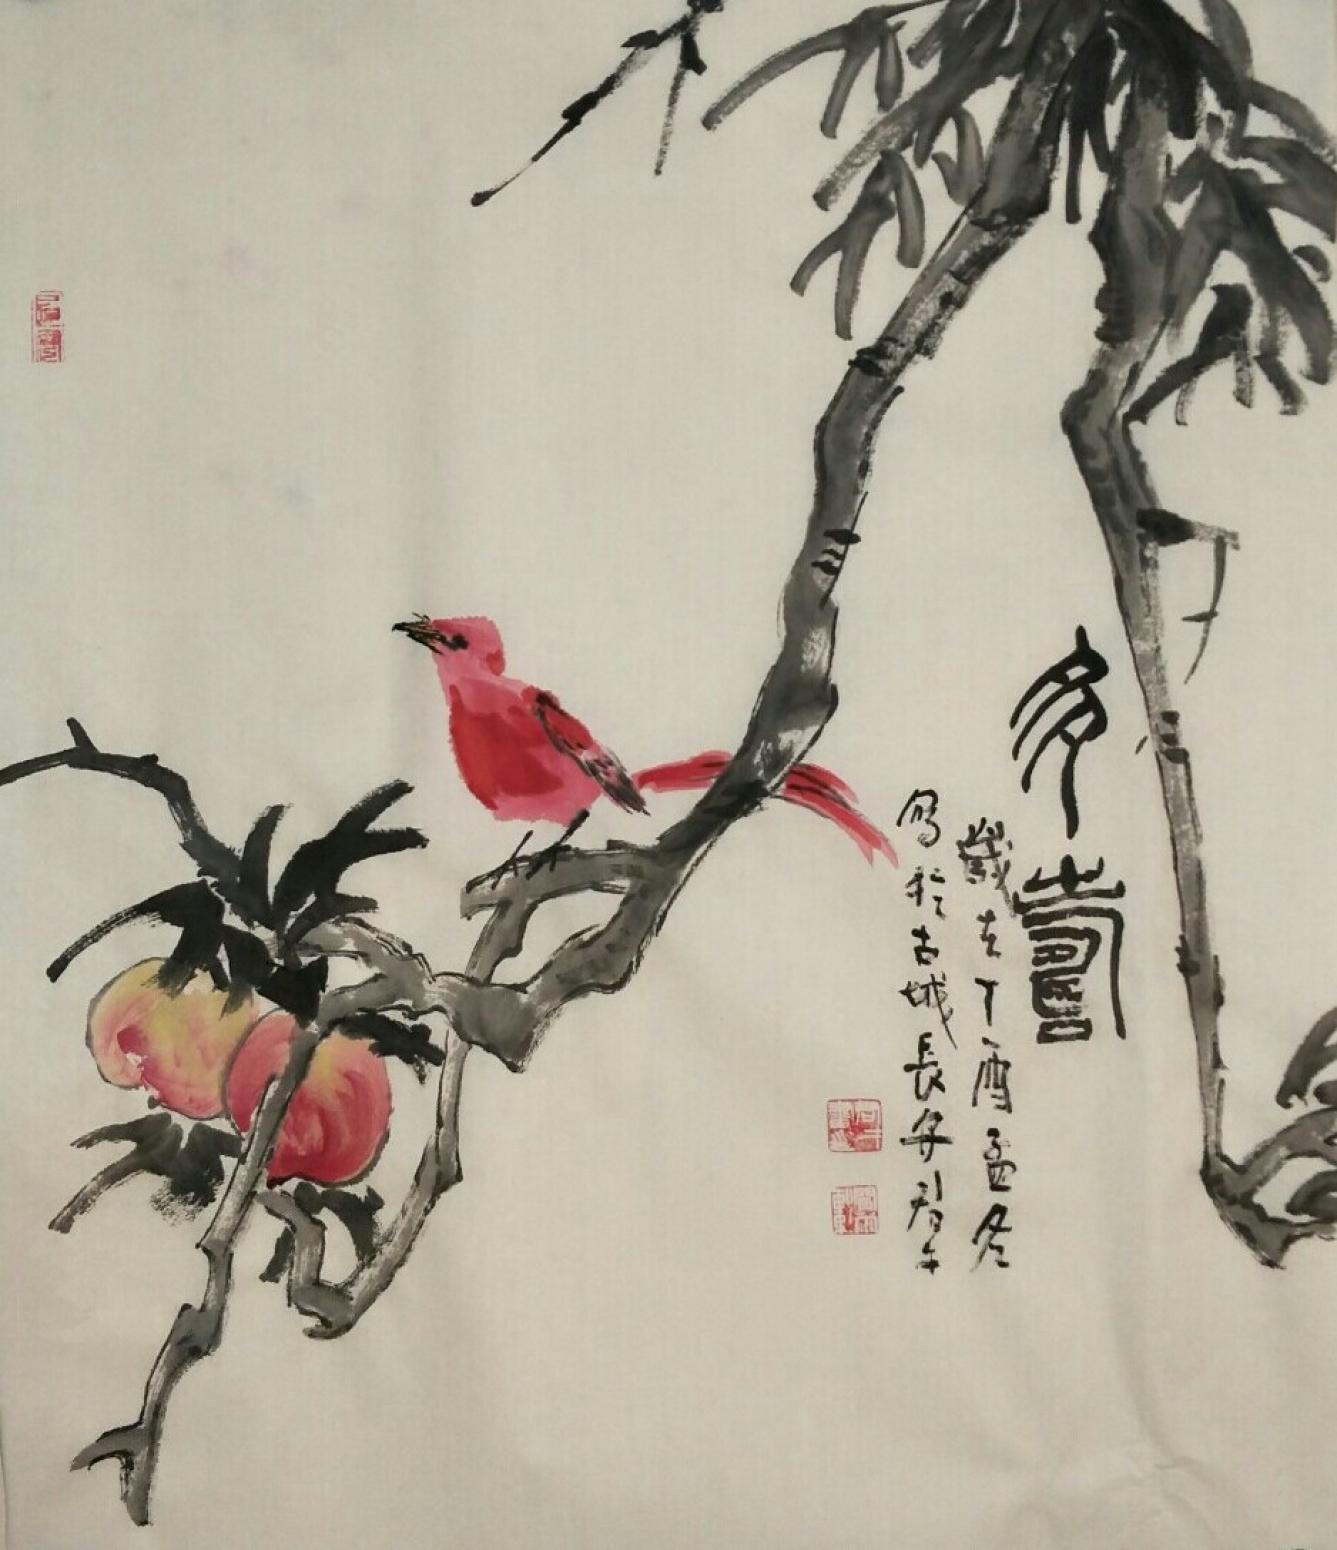 多壽
歲在丁酉孟冬
寫於古城長安